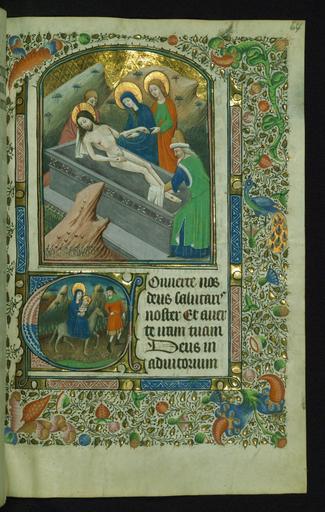 Onuerte nos
deus salutar's
noster Et auer
te iram tuam
Deus in
adiutorium